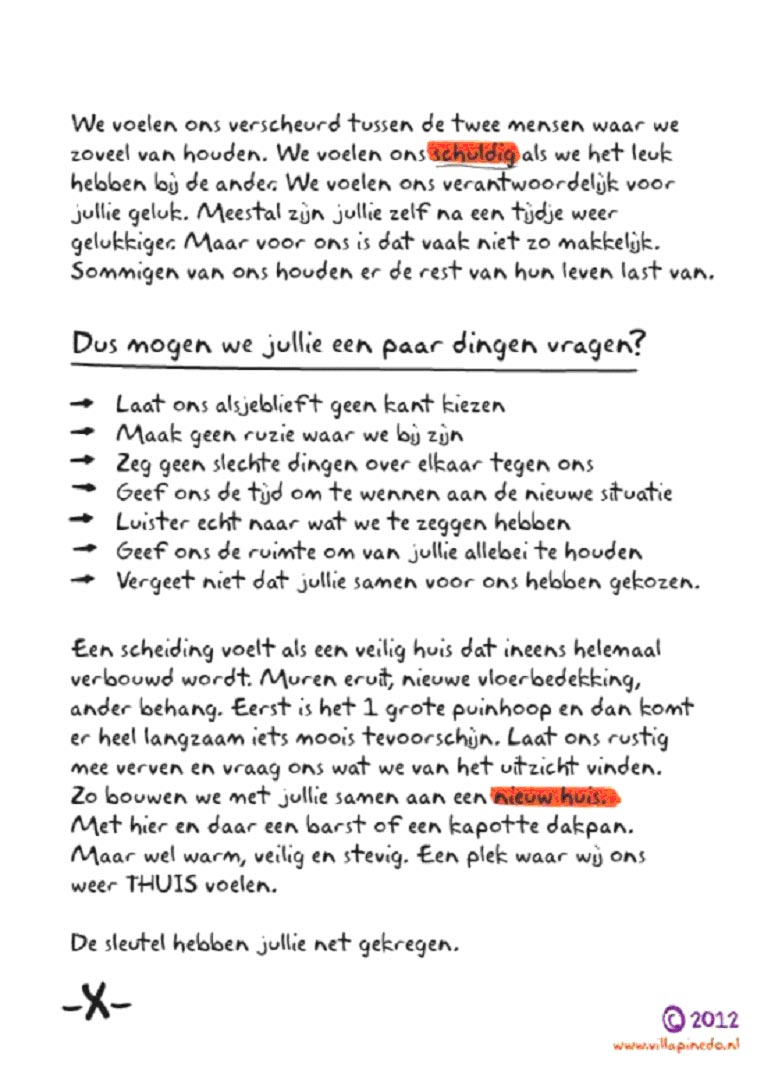 We voelen ons verscheurd tussen de twee mensen waar we
zoveel van houden. We voelen ons schuldig als we het leuk
hebben bij de ander. We voelen ons verantwoordelijk voor
jullie geluk. Meestal zijn jullie zelf na een tijdje weer
gelukkiger. Maar voor ons is dat vaak niet zo makkelijk.
Sommigen van ons houden er de rest van hun leven last van.
Dus mogen we jullie een paar dingen vragen?
→ Laat ons alsjeblieft geen kant kiezen
→ Maak geen ruzie waar we bij zijn
→ Zeg geen slechte dingen over elkaar tegen ons
→ Geef ons de tijd om te wennen aan de nieuwe situatie
→ Luister echt naar wat we te zeggen hebben
→ Geef ons de ruimte om van jullie allebei te houden
→ Vergeet niet dat jullie samen voor ons hebben gekozen.
Een scheiding voelt als een veilig huis dat ineens helemaal
verbouwd wordt. Muren eruit, nieuwe vloerbedekking,
ander behang. Eerst is het 1 grote puinhoop en dan komt
er heel langzaam iets moois tevoorschijn. Laat ons rustig
mee verven en vraag ons wat we van het uitzicht vinden.
Zo bouwen we met jullie samen aan een nieuw huis.
Met hier en daar een barst of een kapotte dakpan.
Maar wel warm, veilig en stevig. Een plek waar wij ons
weer THUIS voelen.
De sleutel hebben jullie net gekregen.
-X-
© 2012
www.villapinedo.nl